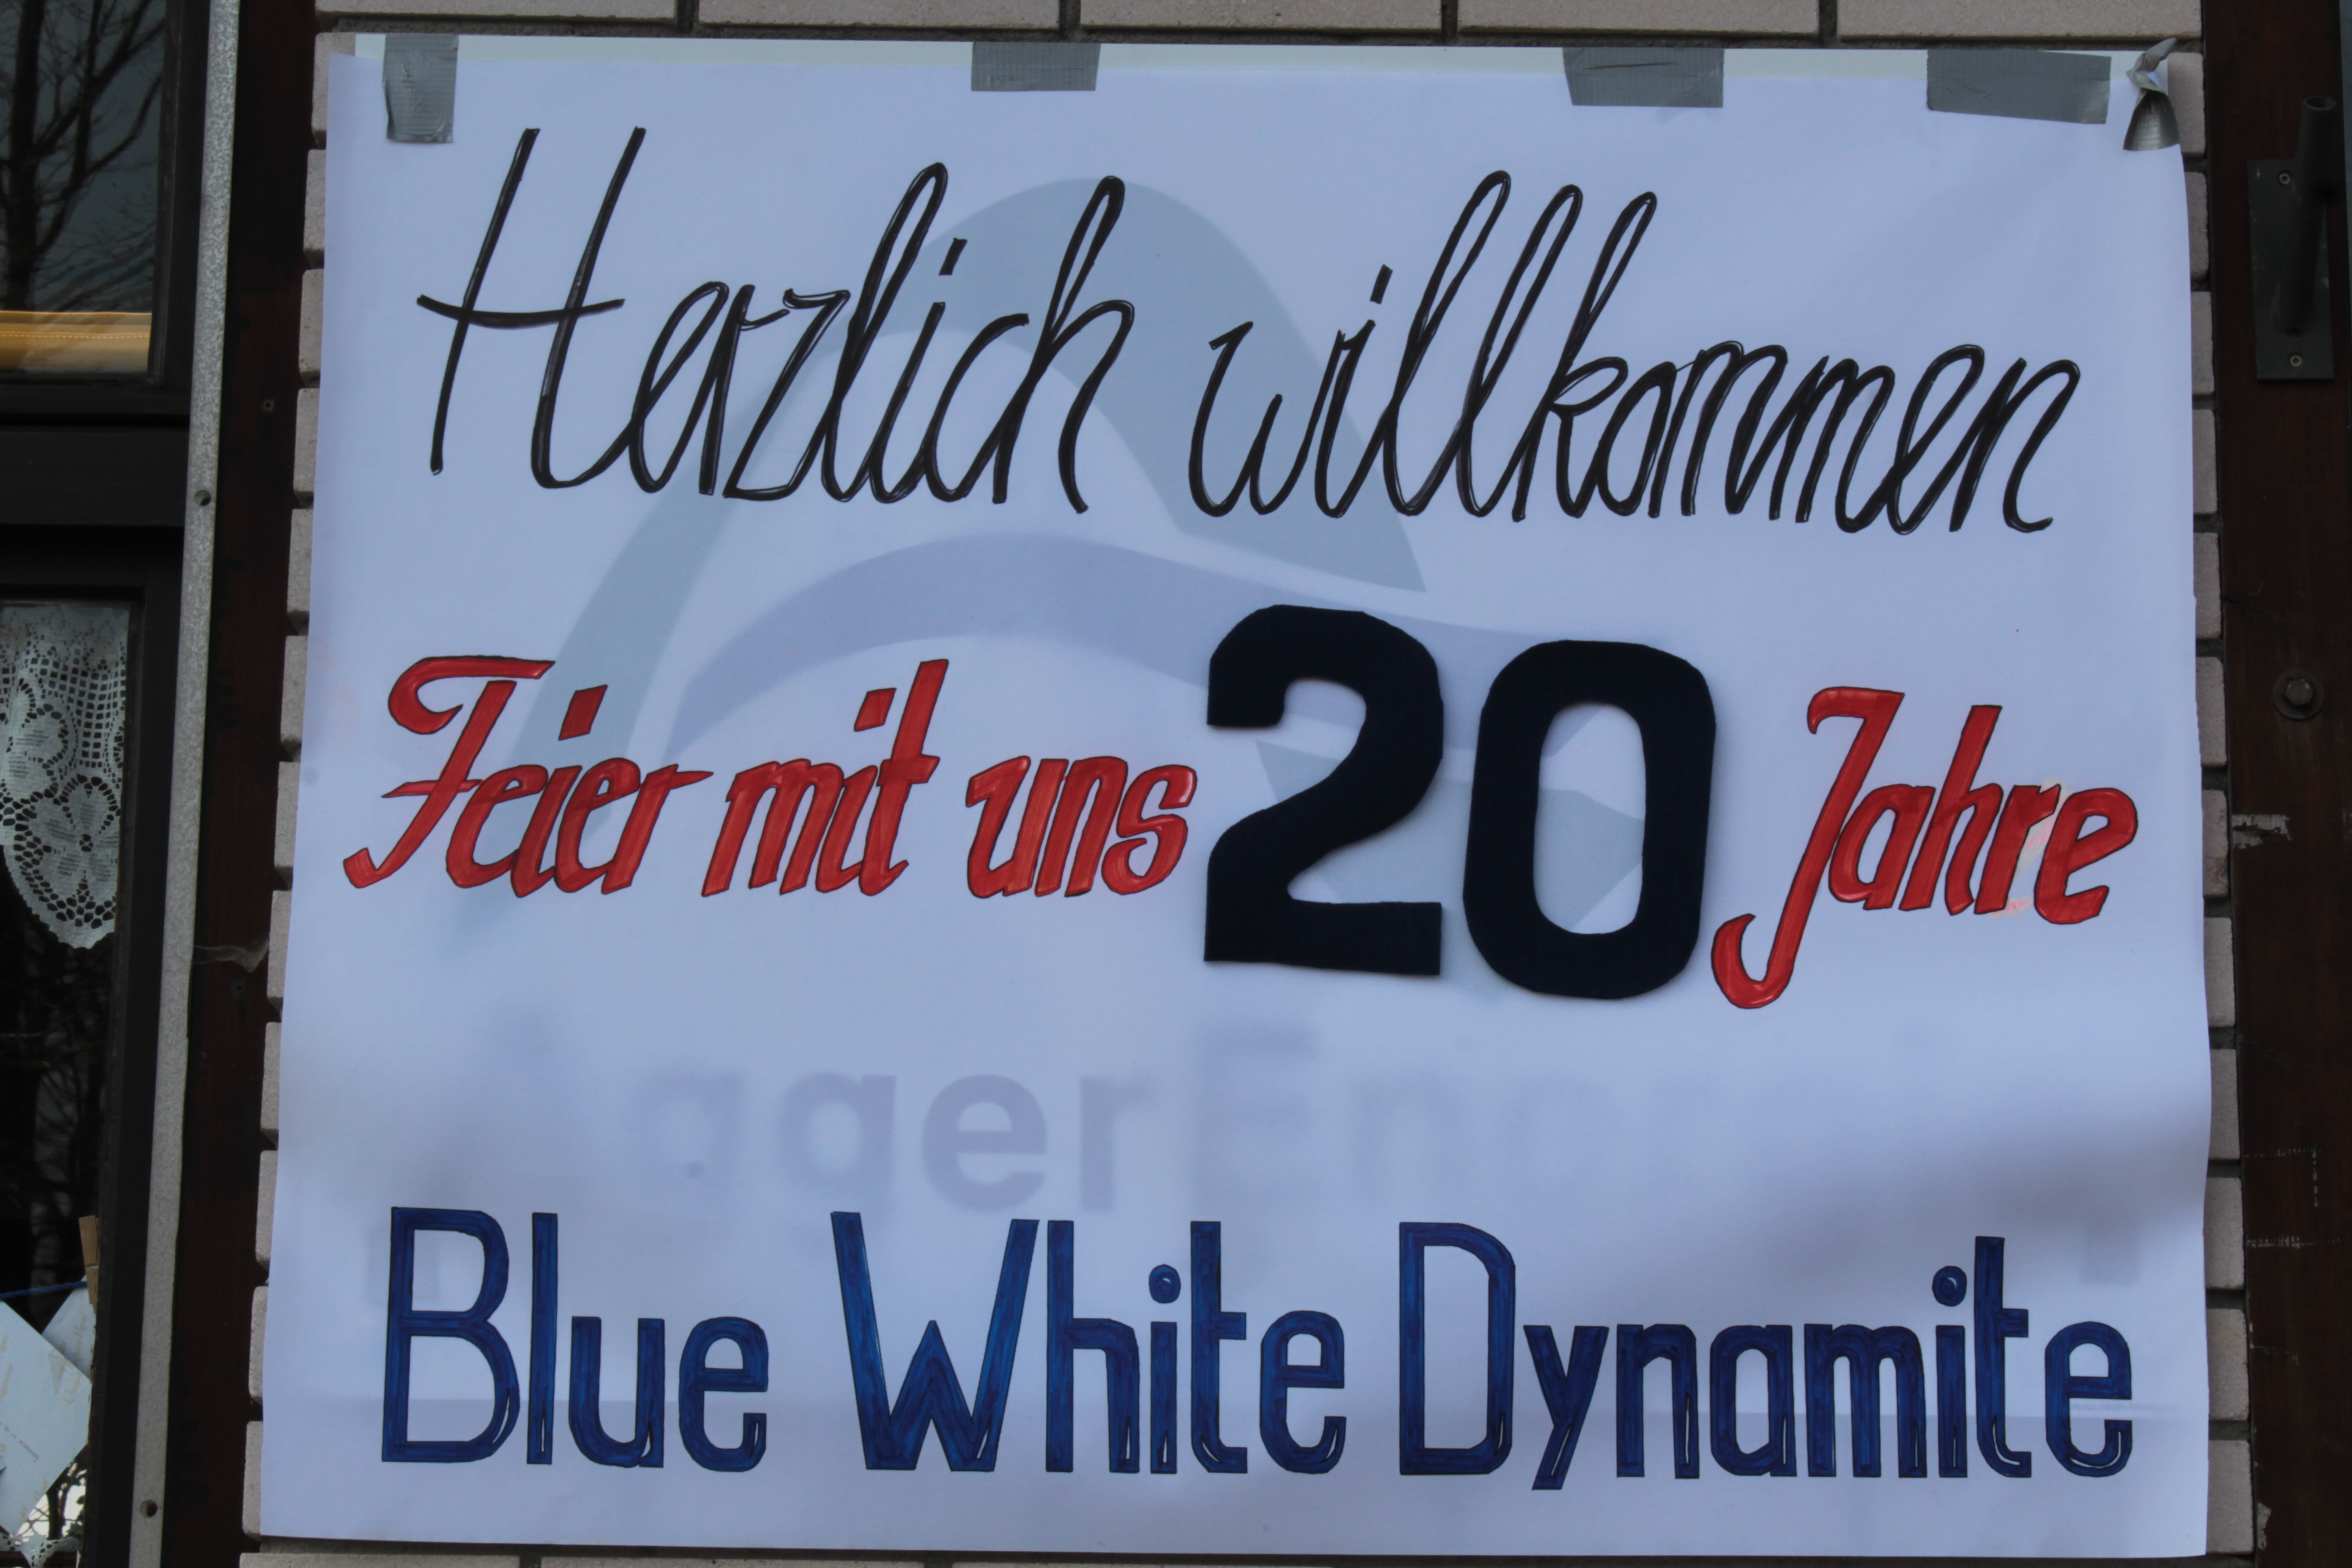 Herzlich willkommen
Feier mit uns 20 Jahre
AggerEn
Blue White Dynamite